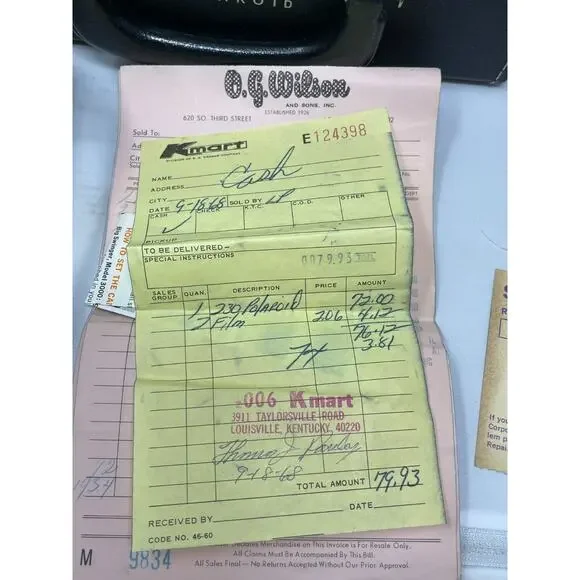 O.G. Wilson
AND SONS, INC.
ESTABLISHED 1926
620 SO. THIRD STREET
Sold To:
Kmart
E124398
NAME Cash
ADDRESS
CITY
DATE 9-18-68
SOLD BY LP
CASH ✓
CHECK
K.T.C.
C.O.D.
OTHER
PICKUP
TO BE DELIVERED—
SPECIAL INSTRUCTIONS
0079.93
SALES GROUP. QUAN. DESCRIPTION PRICE AMOUNT
1 230 Polaroid 72.00
2 Film 2.06 4.12
76.12
TX 3.81
006 Kmart
3911 TAYLORSVILLE ROAD
LOUISVILLE, KENTUCKY, 40220
Thomas J
9-18-68
TOTAL AMOUNT 79.93
RECEIVED BY
DATE
CODE NO. 46-60
HOW TO SET THE CA
Big Swinger, Model 3000
M 9834
Declares Merchandise on This Invoice is For Resale Only.
All Claims Must Be Accompanied By This Bill.
All Sales Final — No
If you
Corpo
lem p
Repai